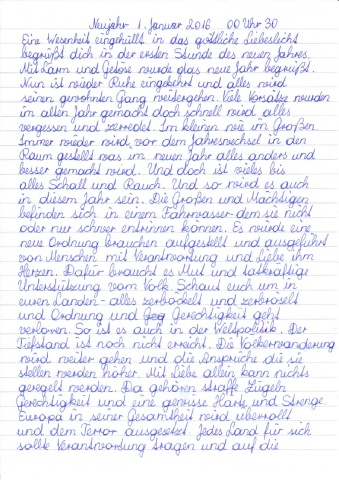 Neujahr 1. Januar 2016 00 Uhr 30
Eine Wesenheit eingehüllt in das göttliche Liebeslicht
begrüßt dich in der ersten Stunde des neuen Jahres.
Mit Lärm und Getöse wurde das neue Jahr begrüßt.
Nun ist wieder Ruhe eingekehrt und alles wird
seinen gewohnten Gang weitergehen. Viele Vorsätze wurden
im alten Jahr gemacht doch schnell wird alles
vergessen und zerredet. Im kleinen wie im Großen.
Immer wieder wird vor dem Jahreswechsel in den
Raum gestellt was im neuen Jahr alles anders und
besser gemacht wird. Und doch ist vieles bis
alles Schall und Rauch. Und so wird es auch
in diesem Jahr sein. Die Großen und Mächtigen
befinden sich in einem Fahrwasser dem sie nicht
oder nur schwer entrinnen können. Es würde eine
neue Ordnung brauchen aufgestellt und ausgeführt
von Menschen mit Verantwortung und Liebe im
Herzen. Dafür braucht es Mut und tatkräftige
Unterstützung vom Volk. Schaut euch um in
euren Landen - alles zerböckelt und zerbröselt
und Ordnung und Gerechtigkeit geht
verloren. So ist es auch in der Weltpolitik. Der
Tiefstand ist noch nicht erreicht. Die Völkerwanderung
wird weiter gehen und die Ansprüche die sie
stellen werden höher. Mit Liebe allein kann nichts
geregelt werden. Da gehören straffe Zügeln
Gerechtigkeit und eine gewisse Härte und Strenge.
Europa in seiner Gesamtheit wird überrollt
und dem Terror ausgesetzt. Jedes Land für sich
sollte Verantwortung tragen und auf die